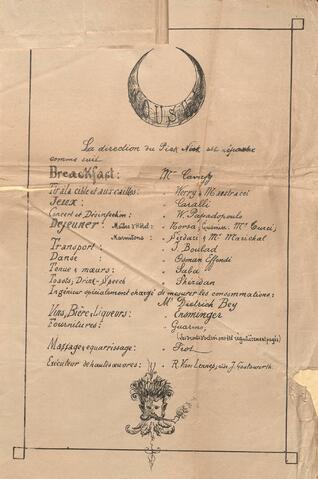 La direction du Pick Nick est répartie
comme suit
Breackfast: Mr Carveff
Tir à la cible et aux cailles: " Horry & Maestracci
Jeux: " Caralli
Concert et Désinfection: " W. Papadopoulo
Dejeuner: Maîtres d'Hôtel: " Morsa, Cuisinier. Mr Curci,
Marmitons: " Fiedari & Mr Marichal
Transport: " J. Boulad
Danse " Osman Effendi
Tenue & mœurs: " Saba
Toasts, Drink-Speech " Sheridan
Ingénieur spécialement chargé de mesurer les consommations:
Mr Dietrich Bey
Vins, Bière, Liqueurs: " Croninger
Fournitures: " Guarino,
Massage & equarrissage: " Piot
Exécuteur de hautes œuvres: " R. Van Lennep, J. Goolsworth.